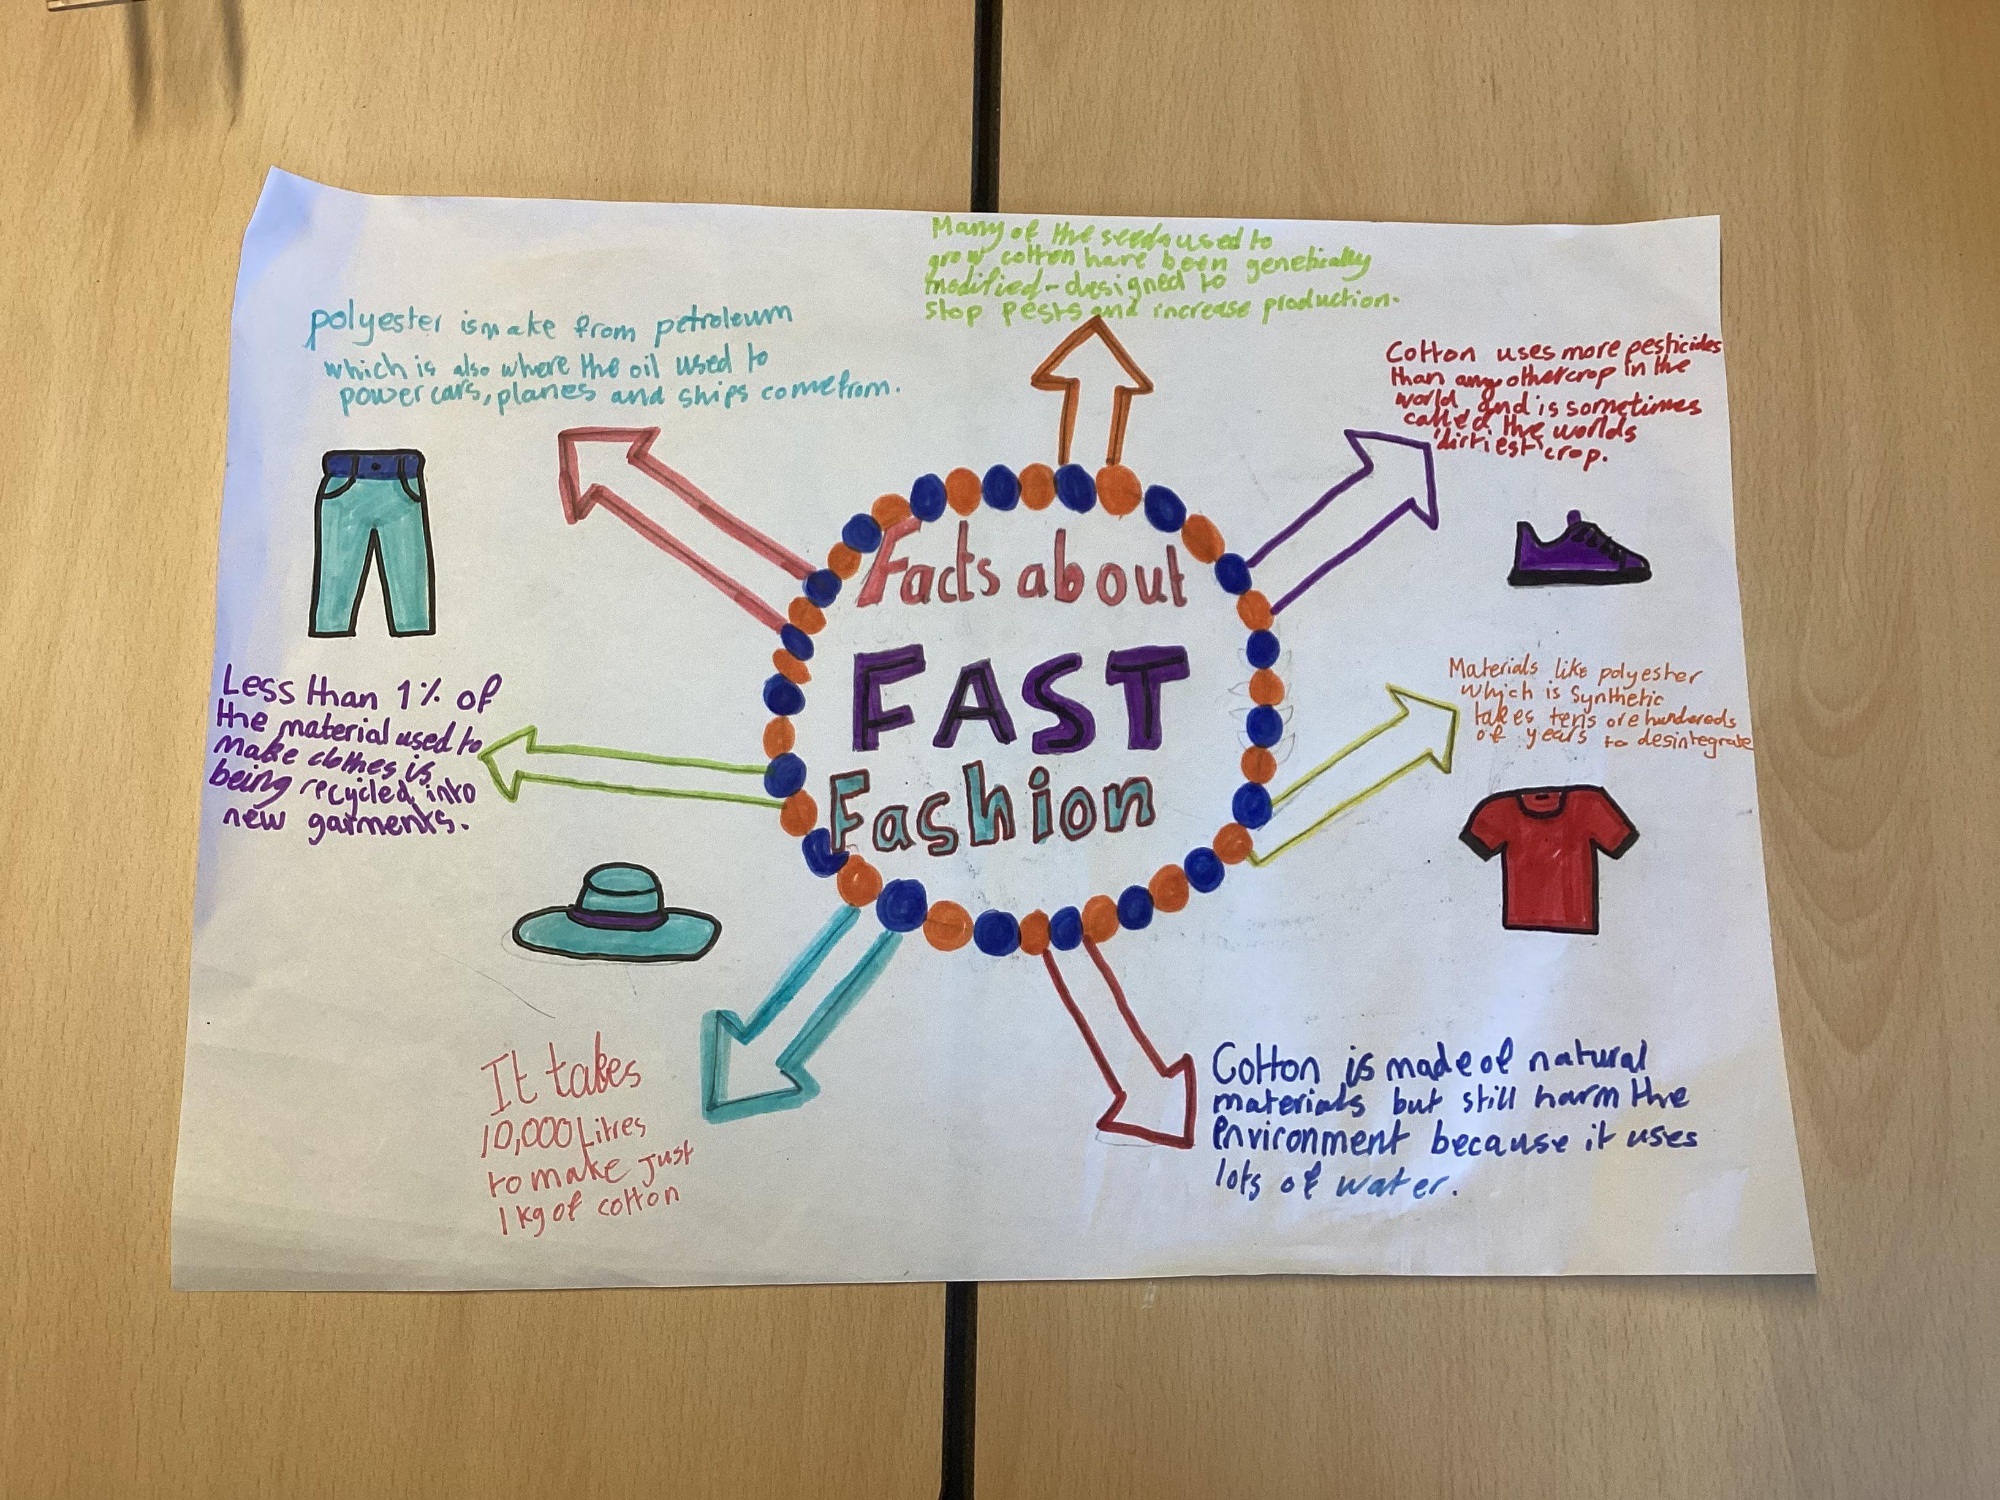 Facts about
FAST
Fashion
Many of the seeds used to
grow cotton have been genetically
modified - designed to
stop pests and increase production.
polyester is make from petroleum
which is also where the oil used to
power cars, planes and ships come from.
Cotton uses more pesticides
than any other crop in the
world and is sometimes
called the worlds
'dirtiest' crop.
Less than 1% of
the material used to
make clothes is
being recycled into
new garments.
Materials like polyester
which is Synthetic
takes tens ore hundereds
of years to desintegrate
It takes
10,000 Litres
to make Just
1 kg of cotton
Cotton is made of natural
materials but still harm the
environment because it uses
lots of water.